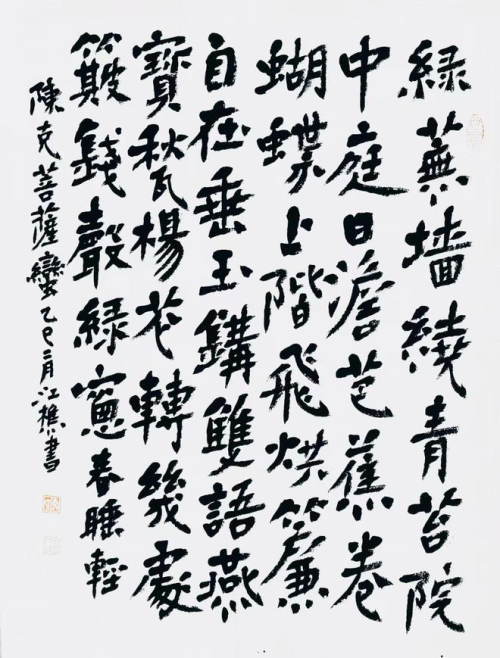 綠蕪墻繞青苔院
中庭日澹芭蕉卷
蝴蝶上階飛烘簾
自在垂玉鉤雙語燕
寶甃楊花轉幾處
簸錢聲綠窻春睡輕
陳克菩薩蠻乙巳二月江樵書